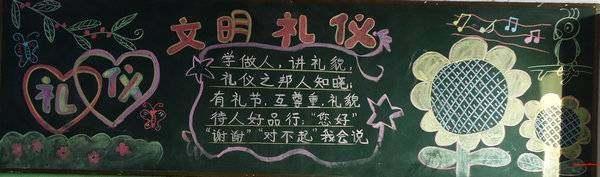 文明礼仪
礼仪
学做人，讲礼貌，
礼仪之邦人知晓；
有礼节，互尊重，礼貌
待人好品行；“您好”
“谢谢”“对不起”我会说